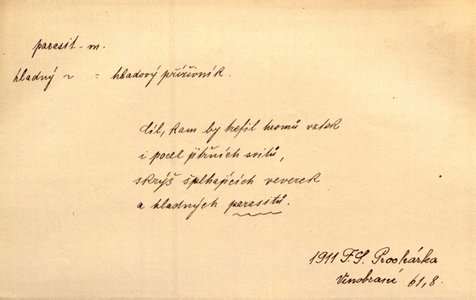 parasit - m.
hladný ~ = hladový příživník.
cíl, kam by trefil hromů vztek
i pocel jitřních svitů,
skrýš šplhajících veverek
a hladných parasitů.
1911 F. S. Procházka
Vinobraní 61,8.